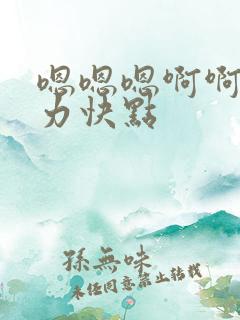 嗯嗯嗯啊啊
力快點
孫無味
未經同意禁止轉載